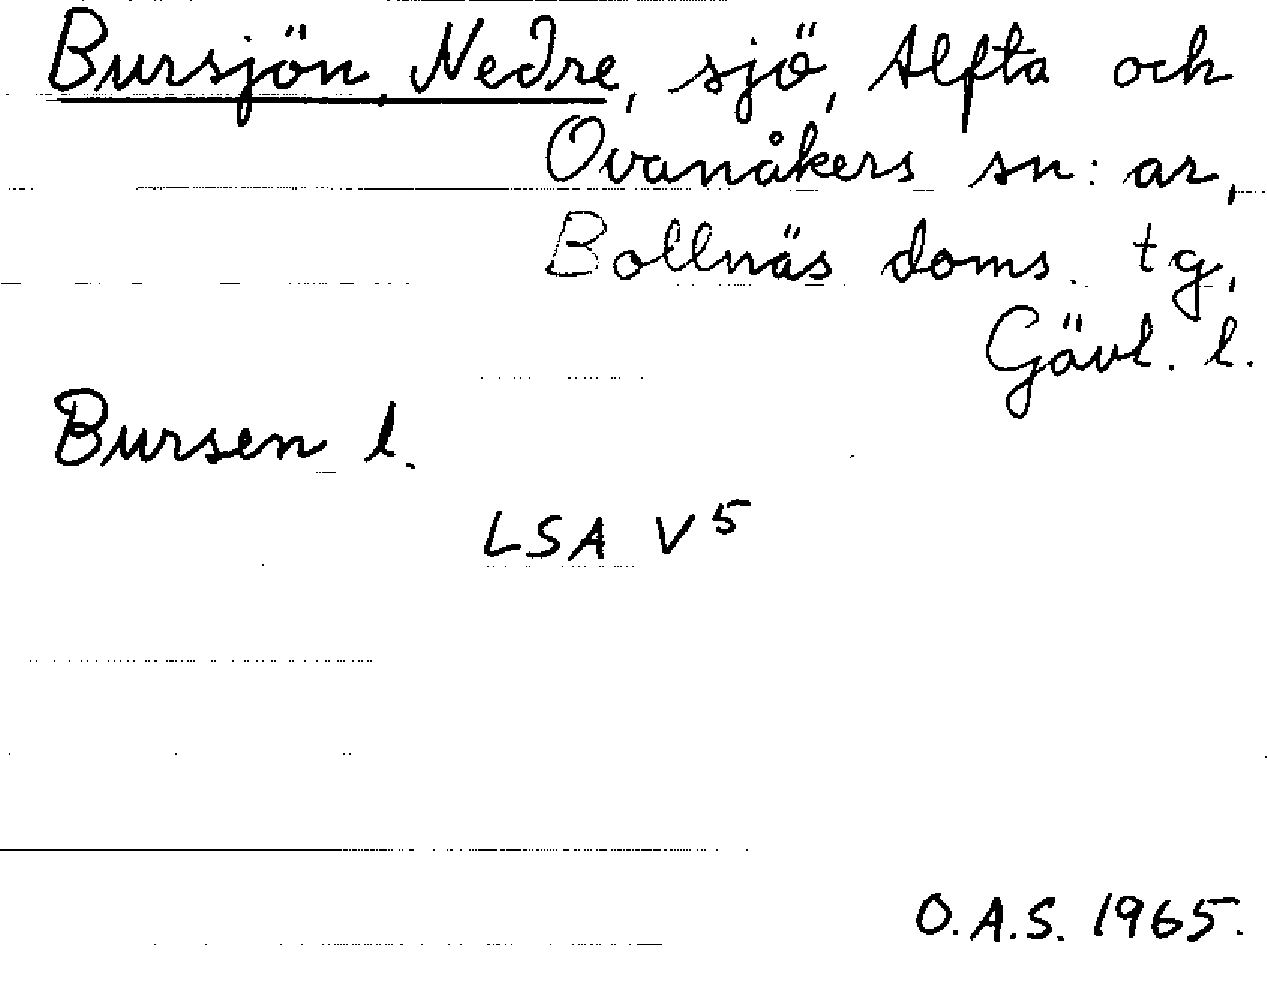 Bursjön, Nedre, sjö, Alfta och
Ovanåkers sn:ar,
Bollnäs doms. tg,
Gävl. l.
Bursen l.
LSA V 5
O.A.S. 1965.